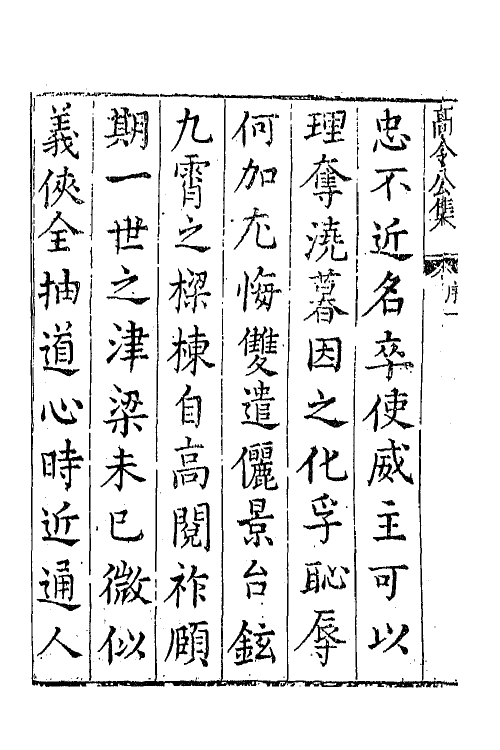 高令公集 序一
忠不近名卒使威主可以
理奪澆暮因之化孚恥辱
何加尤悔雙遣儷景台鉉
九霄之樑棟自高閱祚頤
期一世之津梁未已微似
義俠全抽道心時近通人